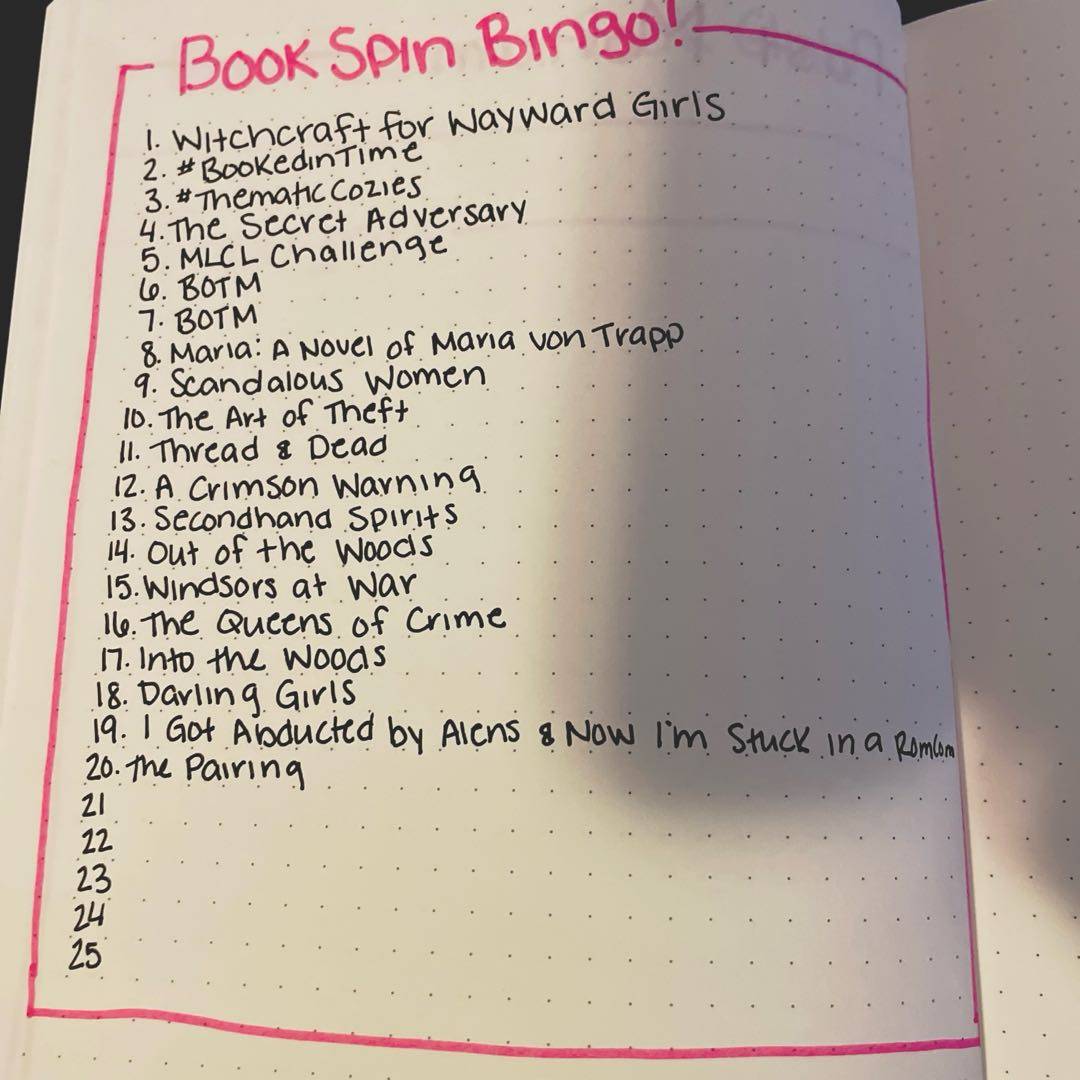 Book Spin Bingo!
1. Witchcraft for Wayward Girls
2. #BookedinTime
3. #ThematicCozies
4. The Secret Adversary
5. MLCL Challenge
6. BOTM
7. BOTM
8. Maria: A Novel of Maria von Trapp
9. Scandalous Women
10. The Art of Theft
11. Thread & Dead
12. A Crimson Warning
13. Secondhand Spirits
14. Out of the Woods
15. Windsors at War
16. The Queens of Crime
17. Into the Woods
18. Darling Girls
19. I Got Abducted by Aliens & Now I'm Stuck in a RomCom
20. The Pairing
21
22
23
24
25